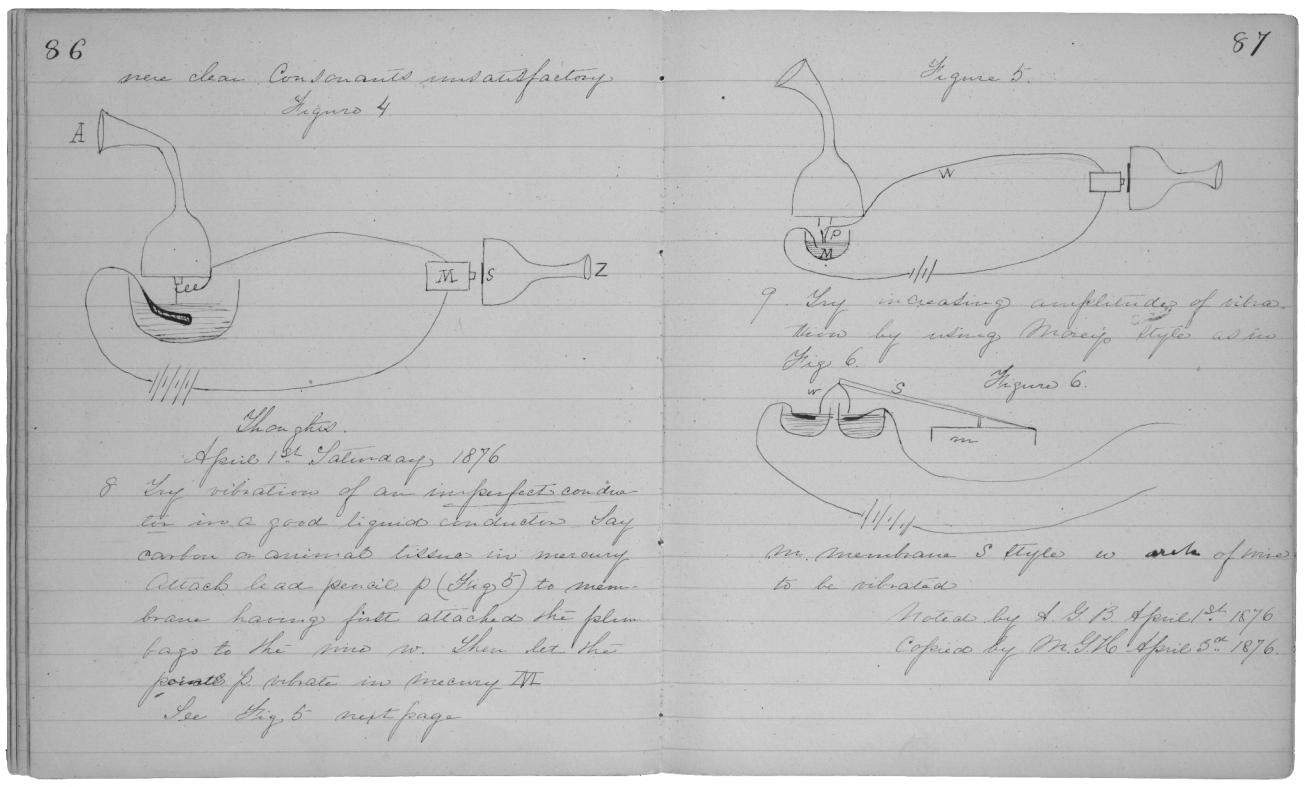 86
were clear Consonants unsatisfactory
Figure 4
A
M
S
Z
Thoughts.
April 1st Saturday 1876
8 Try vibration of an imperfect conduc
tor in a good liquid conductor Say
carbon or animal tissue in mercury
Attach lead pencil p (Fig 5) to mem-
brane having first attached the plum
bago to the wire w. Then let the
p vibrate in mecury M
See Fig 5 next page
87
Figure 5.
W
P
M
9. Try increasing amplitude of vibra-
tion by using Style as in
Fig 6.
Figure 6.
w S
m
m. membrane S Style w arch of wire
to be vibrated
Noted by A. G. B. April 1st 1876
Copied by M. G. H. April 3d 1876.